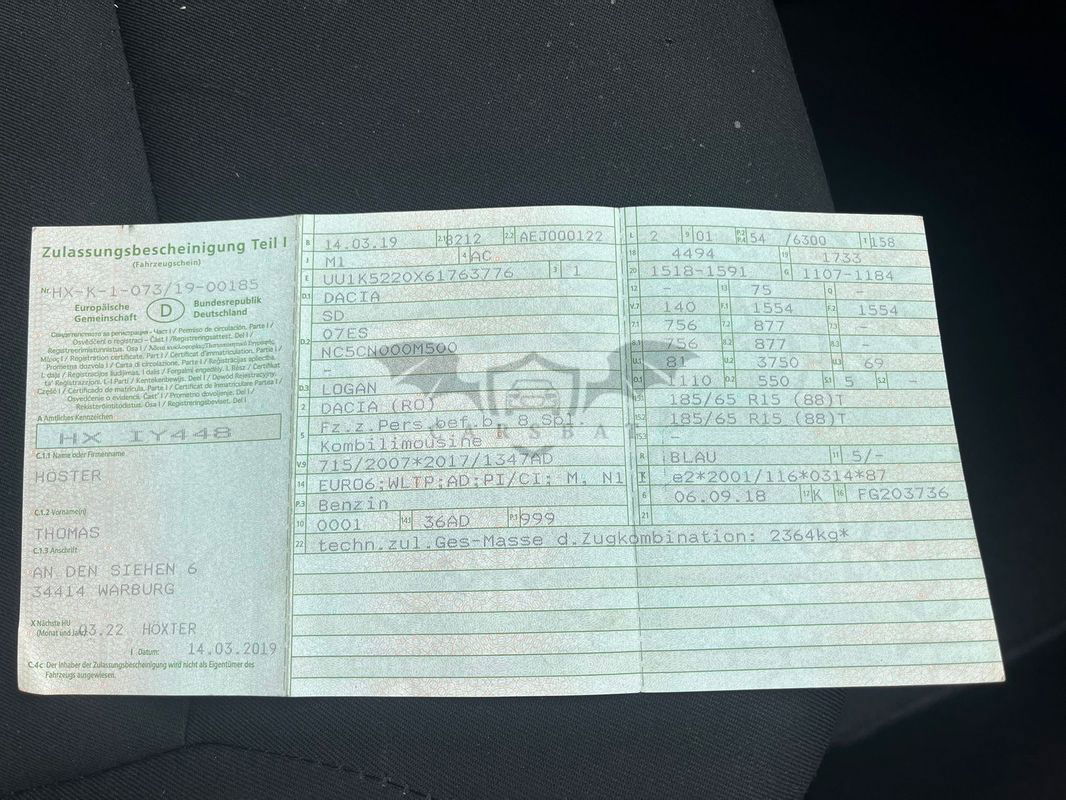 Zulassungsbescheinigung Teil I
(Fahrzeugschein)
Nr. HX-K-1-073/19-00185
Europäische Gemeinschaft
D
Bundesrepublik Deutschland
A Amtliches Kennzeichen
HX IY448
C.1.1 Name oder Firmenname
HÖSTER
C.1.2 Vorname(n)
THOMAS
C.1.3 Anschrift
AN DEN SIEHEN 6
34414 WARBURG
X Nächste HU
(Monat und Jahr) 03.22 HÖXTER
I Datum: 14.03.2019
C.4c Der Inhaber der Zulassungsbescheinigung wird nicht als Eigentümer des
Fahrzeugs ausgewiesen.
B 14.03.19 2.1 8212 2.2 AEJ000122
J M1 4 AC
E UU1K5220X61763776 3 1
D.1 DACIA
SD
07ES
D.2 NC5CN000M500
-
D.3 LOGAN
2 DACIA (RO)
5 Fz.z.Pers.bef.b. 8 Sp.
Kombilimousine
V.9 715/2007*2017/1347AD
14 EURO6;WLTP;AD;PI/CI; M, N1
P.3 Benzin
10 0001 14.1 36AD P.1 999
22 techn.zul.Ges-Masse d.Zugkombination: 2364kg*
L 2 9 01 P.2 P.4 54 /6300 T 158
18 4494 19 1733
20 1518-1591 G 1107-1184
12 - 13 75 Q -
V.7 140 F.1 1554 F.2 1554
7.1 756 7.2 877 7.3 -
8.1 756 8.2 877 8.3 -
U.1 81 U.2 3750 U.3 69
O.1 1110 O.2 550 S.1 5 S.2 -
15.1 185/65 R15 (88)T
15.2 185/65 R15 (88)T
15.3 -
R BLAU 11 5/-
K e2*2001/116*0314*87
6 06.09.18 17 K 16 FG203736
21
CARSBAT